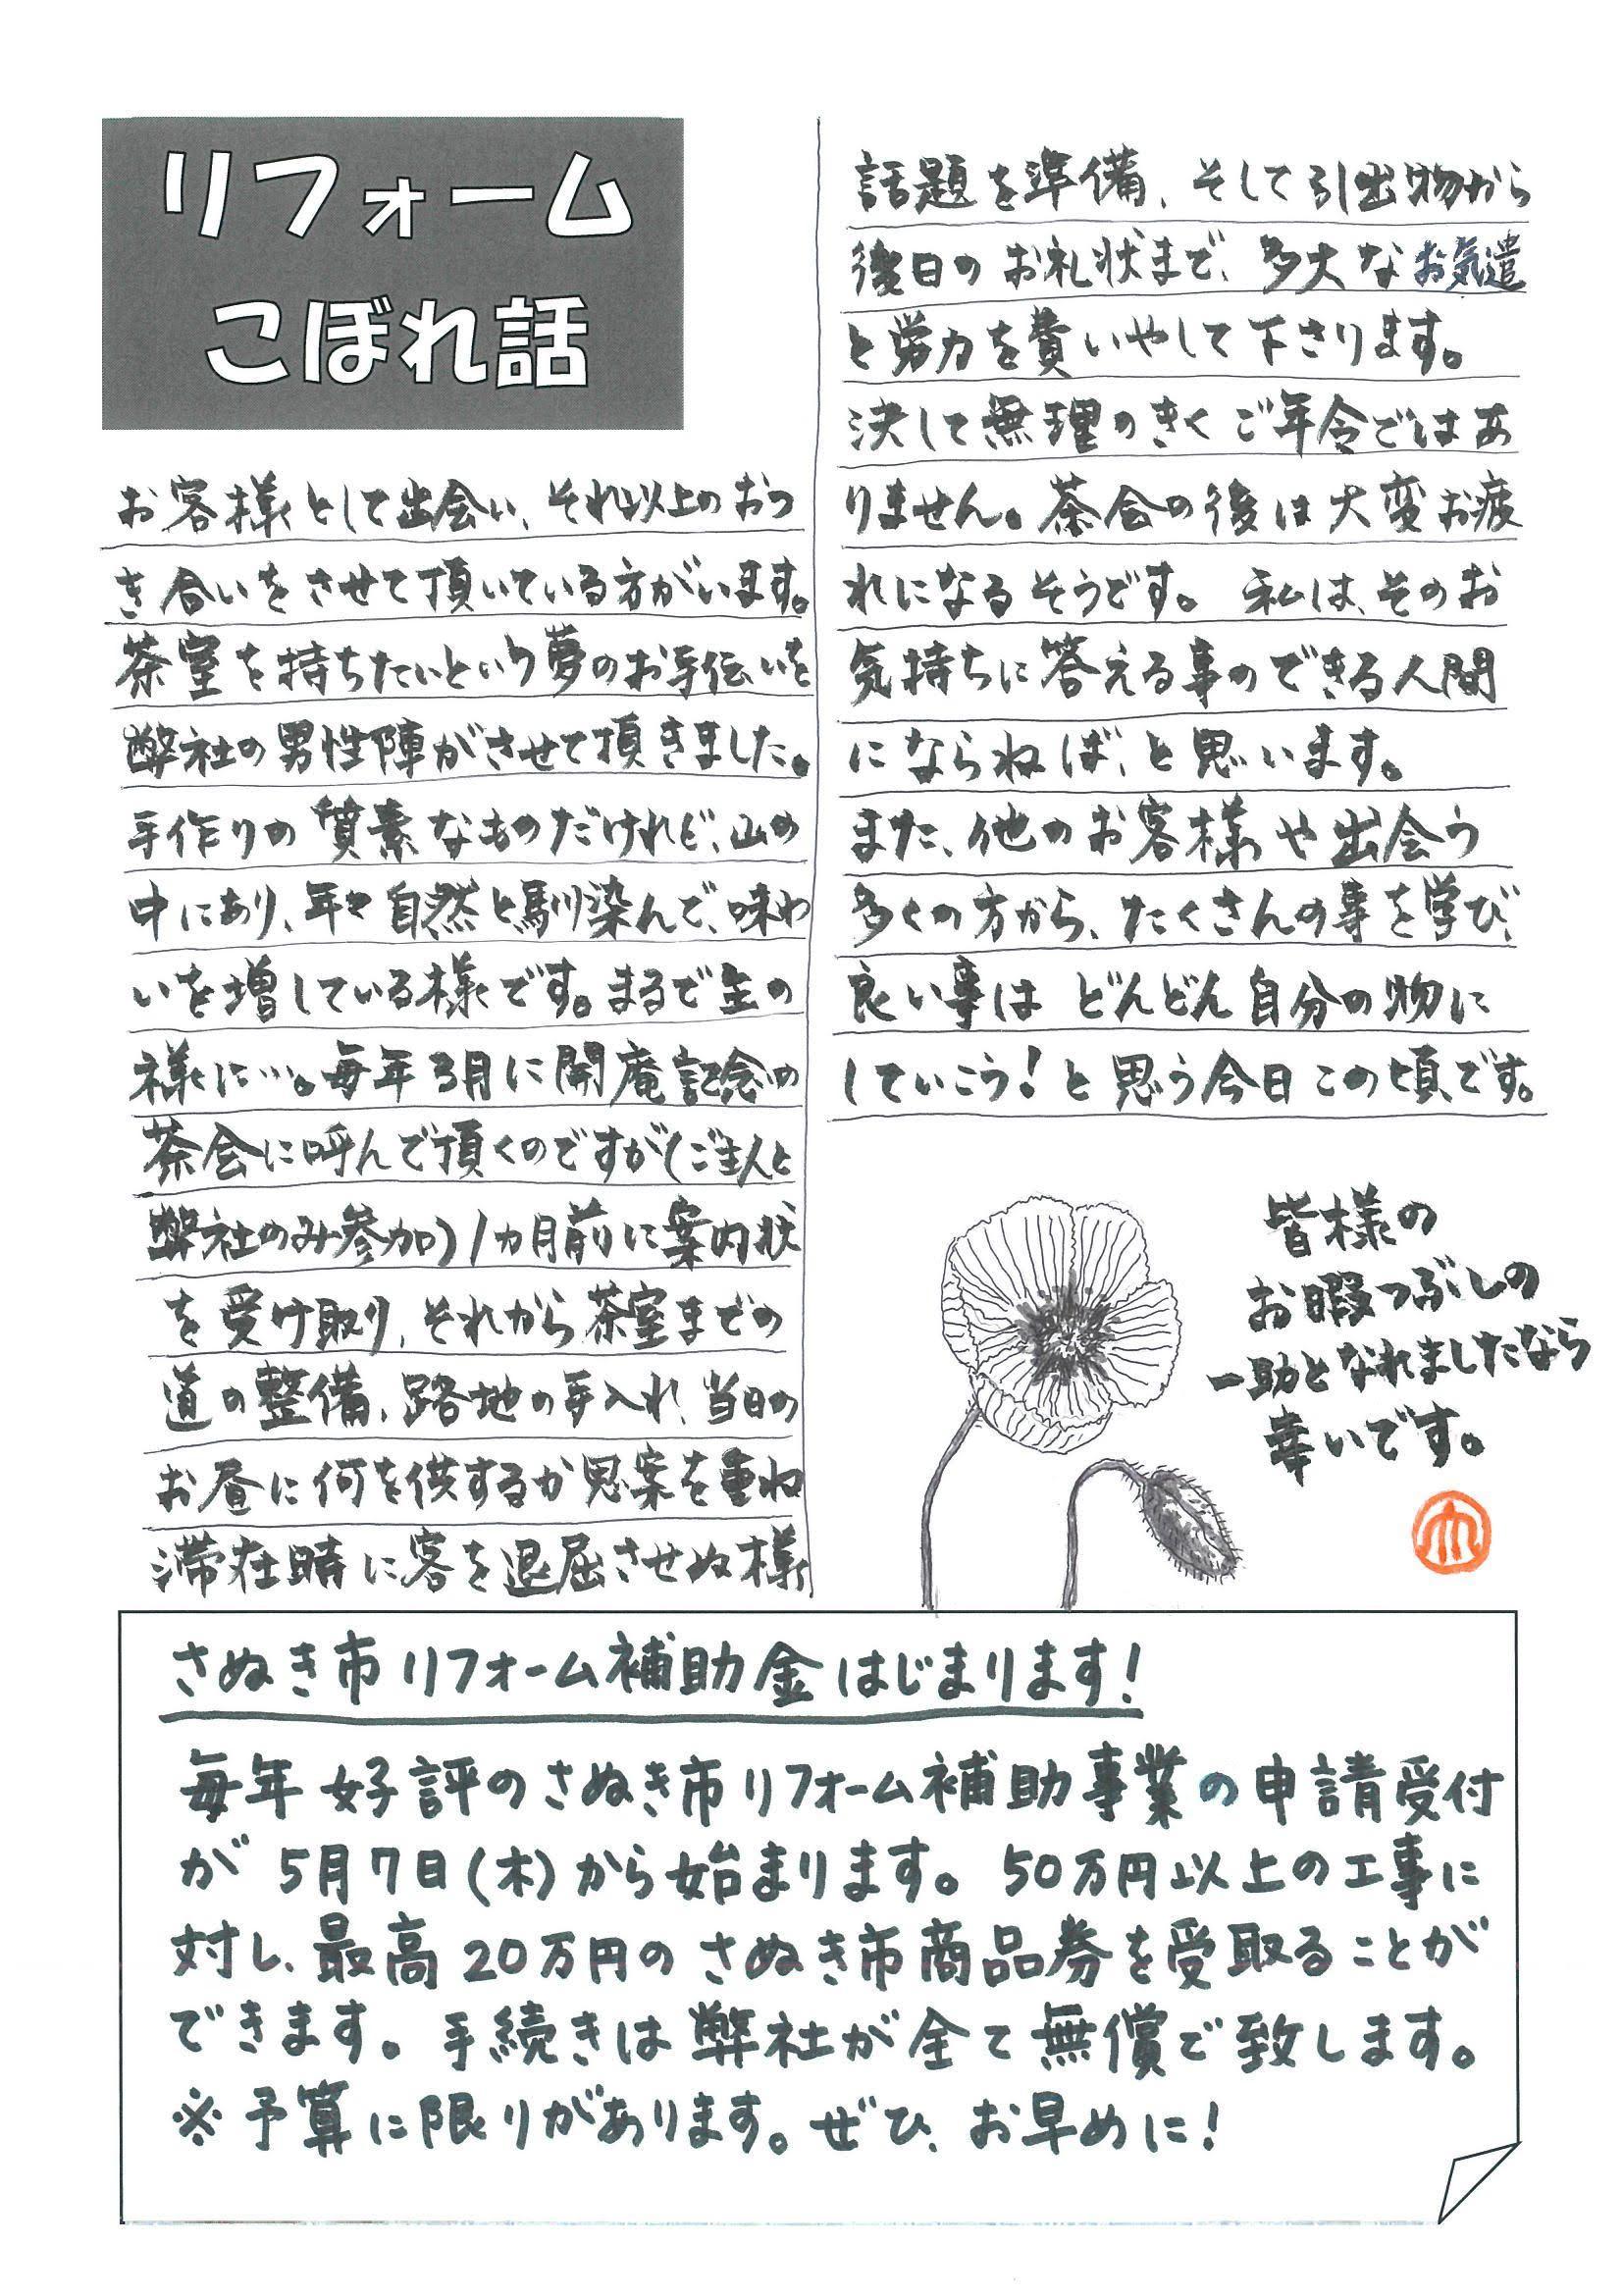 リフォーム
こぼれ話
お客様として出会い、それ以上のおつ
き合いをさせて頂いている方がいます。
茶室を持ちたいという夢のお手伝いを
弊社の男性陣がさせて頂きました。
手作りの質素なものだけれど、山の
中にあり、年々自然と馴染んで、味わ
いを増している様です。まるで主の
様に…。毎年3月に開庵記念の
茶会に呼んで頂くのですが(ご主人と
弊社のみ参加)1ヵ月前に案内状
を受け取り、それから茶室までの
道の整備、路地の手入れ、当日の
お昼に何を供するか思案を重ね
滞在時に客を退屈させぬ様
話題を準備、そして引出物から
後日のお礼状まで、多大なお気遣
と労力を費いやして下さります。
決して無理のきくご年令ではあ
りません。茶会の後は大変お疲
れになるそうです。私は、そのお
気持ちに答える事のできる人間
にならねば、と思います。
また、他のお客様や出会う
多くの方から、たくさんの事を学び、
良い事はどんどん自分の物に
していこう!と思う今日この頃です。
皆様の
お暇つぶしの
一助となれましたなら
幸いです。
さぬき市リフォーム補助金はじまります!
毎年好評のさぬき市リフォーム補助事業の申請受付
が5月7日(木)から始まります。50万円以上の工事に
対し、最高20万円のさぬき市商品券を受取ることが
できます。手続きは弊社が全て無償で致します。
※予算に限りがあります。ぜひ、お早めに!